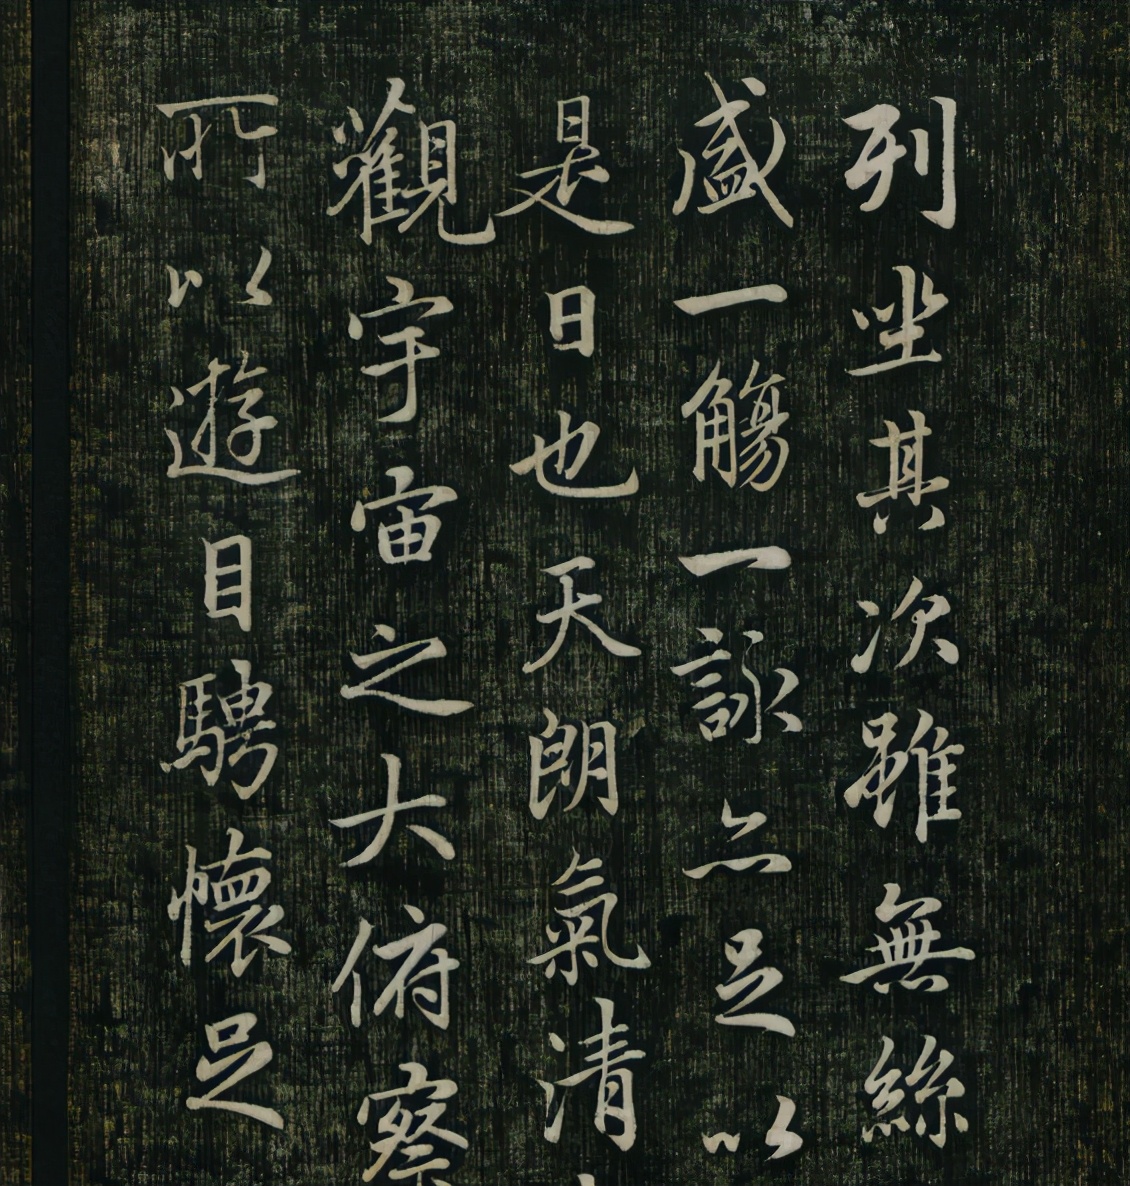 列坐其次雖無絲
盛一觴一詠亦足以
是日也天朗氣清
觀宇宙之大俯察
所以遊目騁懷足